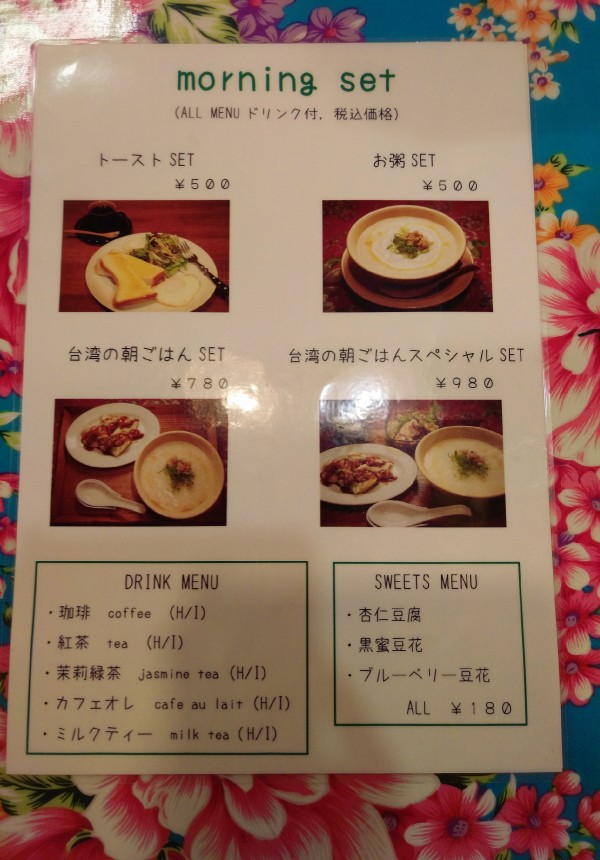 morning set
(ALL MENU ドリンク付, 税込価格)
トーストSET
¥500
お粥SET
¥500
台湾の朝ごはんSET
¥780
台湾の朝ごはんスペシャルSET
¥980
DRINK MENU
・珈琲 coffee (H/I)
・紅茶 tea (H/I)
・茉莉緑茶 jasmine tea (H/I)
・カフェオレ cafe au lait (H/I)
・ミルクティー milk tea (H/I)
SWEETS MENU
・杏仁豆腐
・黒蜜豆花
・ブルーベリー豆花
ALL ¥180